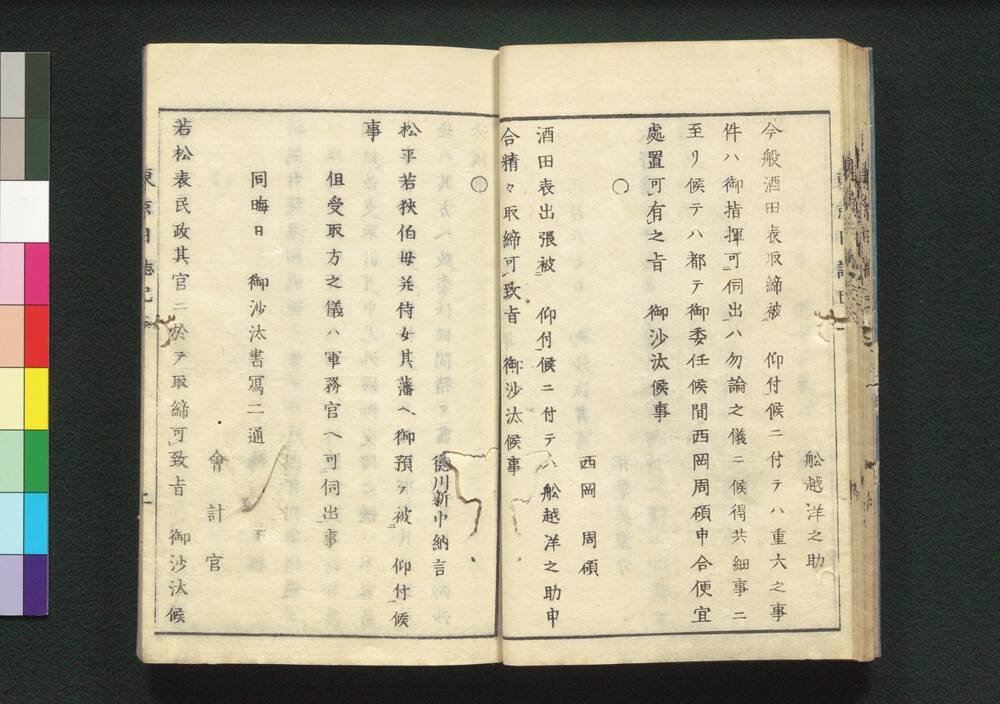 舩越洋之助
今般酒田表取締被　仰付候ニ付テハ重大之事
件ハ御指揮可伺出ハ勿論之儀ニ候得共細事ニ
至リ候テハ都テ御委任候間西岡周碩申合便宜
處置可有之旨　御沙汰候事
○
西岡　周碩
酒田表出張被　仰付候ニ付テハ舩越洋之助申
合精々取締可致旨　御沙汰候事
○
德川新中納言
松平若狹伯母并侍女其藩ヘ御預ケ被　仰付候
事
但受取方之儀ハ軍務官ヘ可伺出事
同晦日　御沙汰書寫二通
會計官
若松表民政其官ニ於テ取締可致旨　御沙汰候
東京日誌